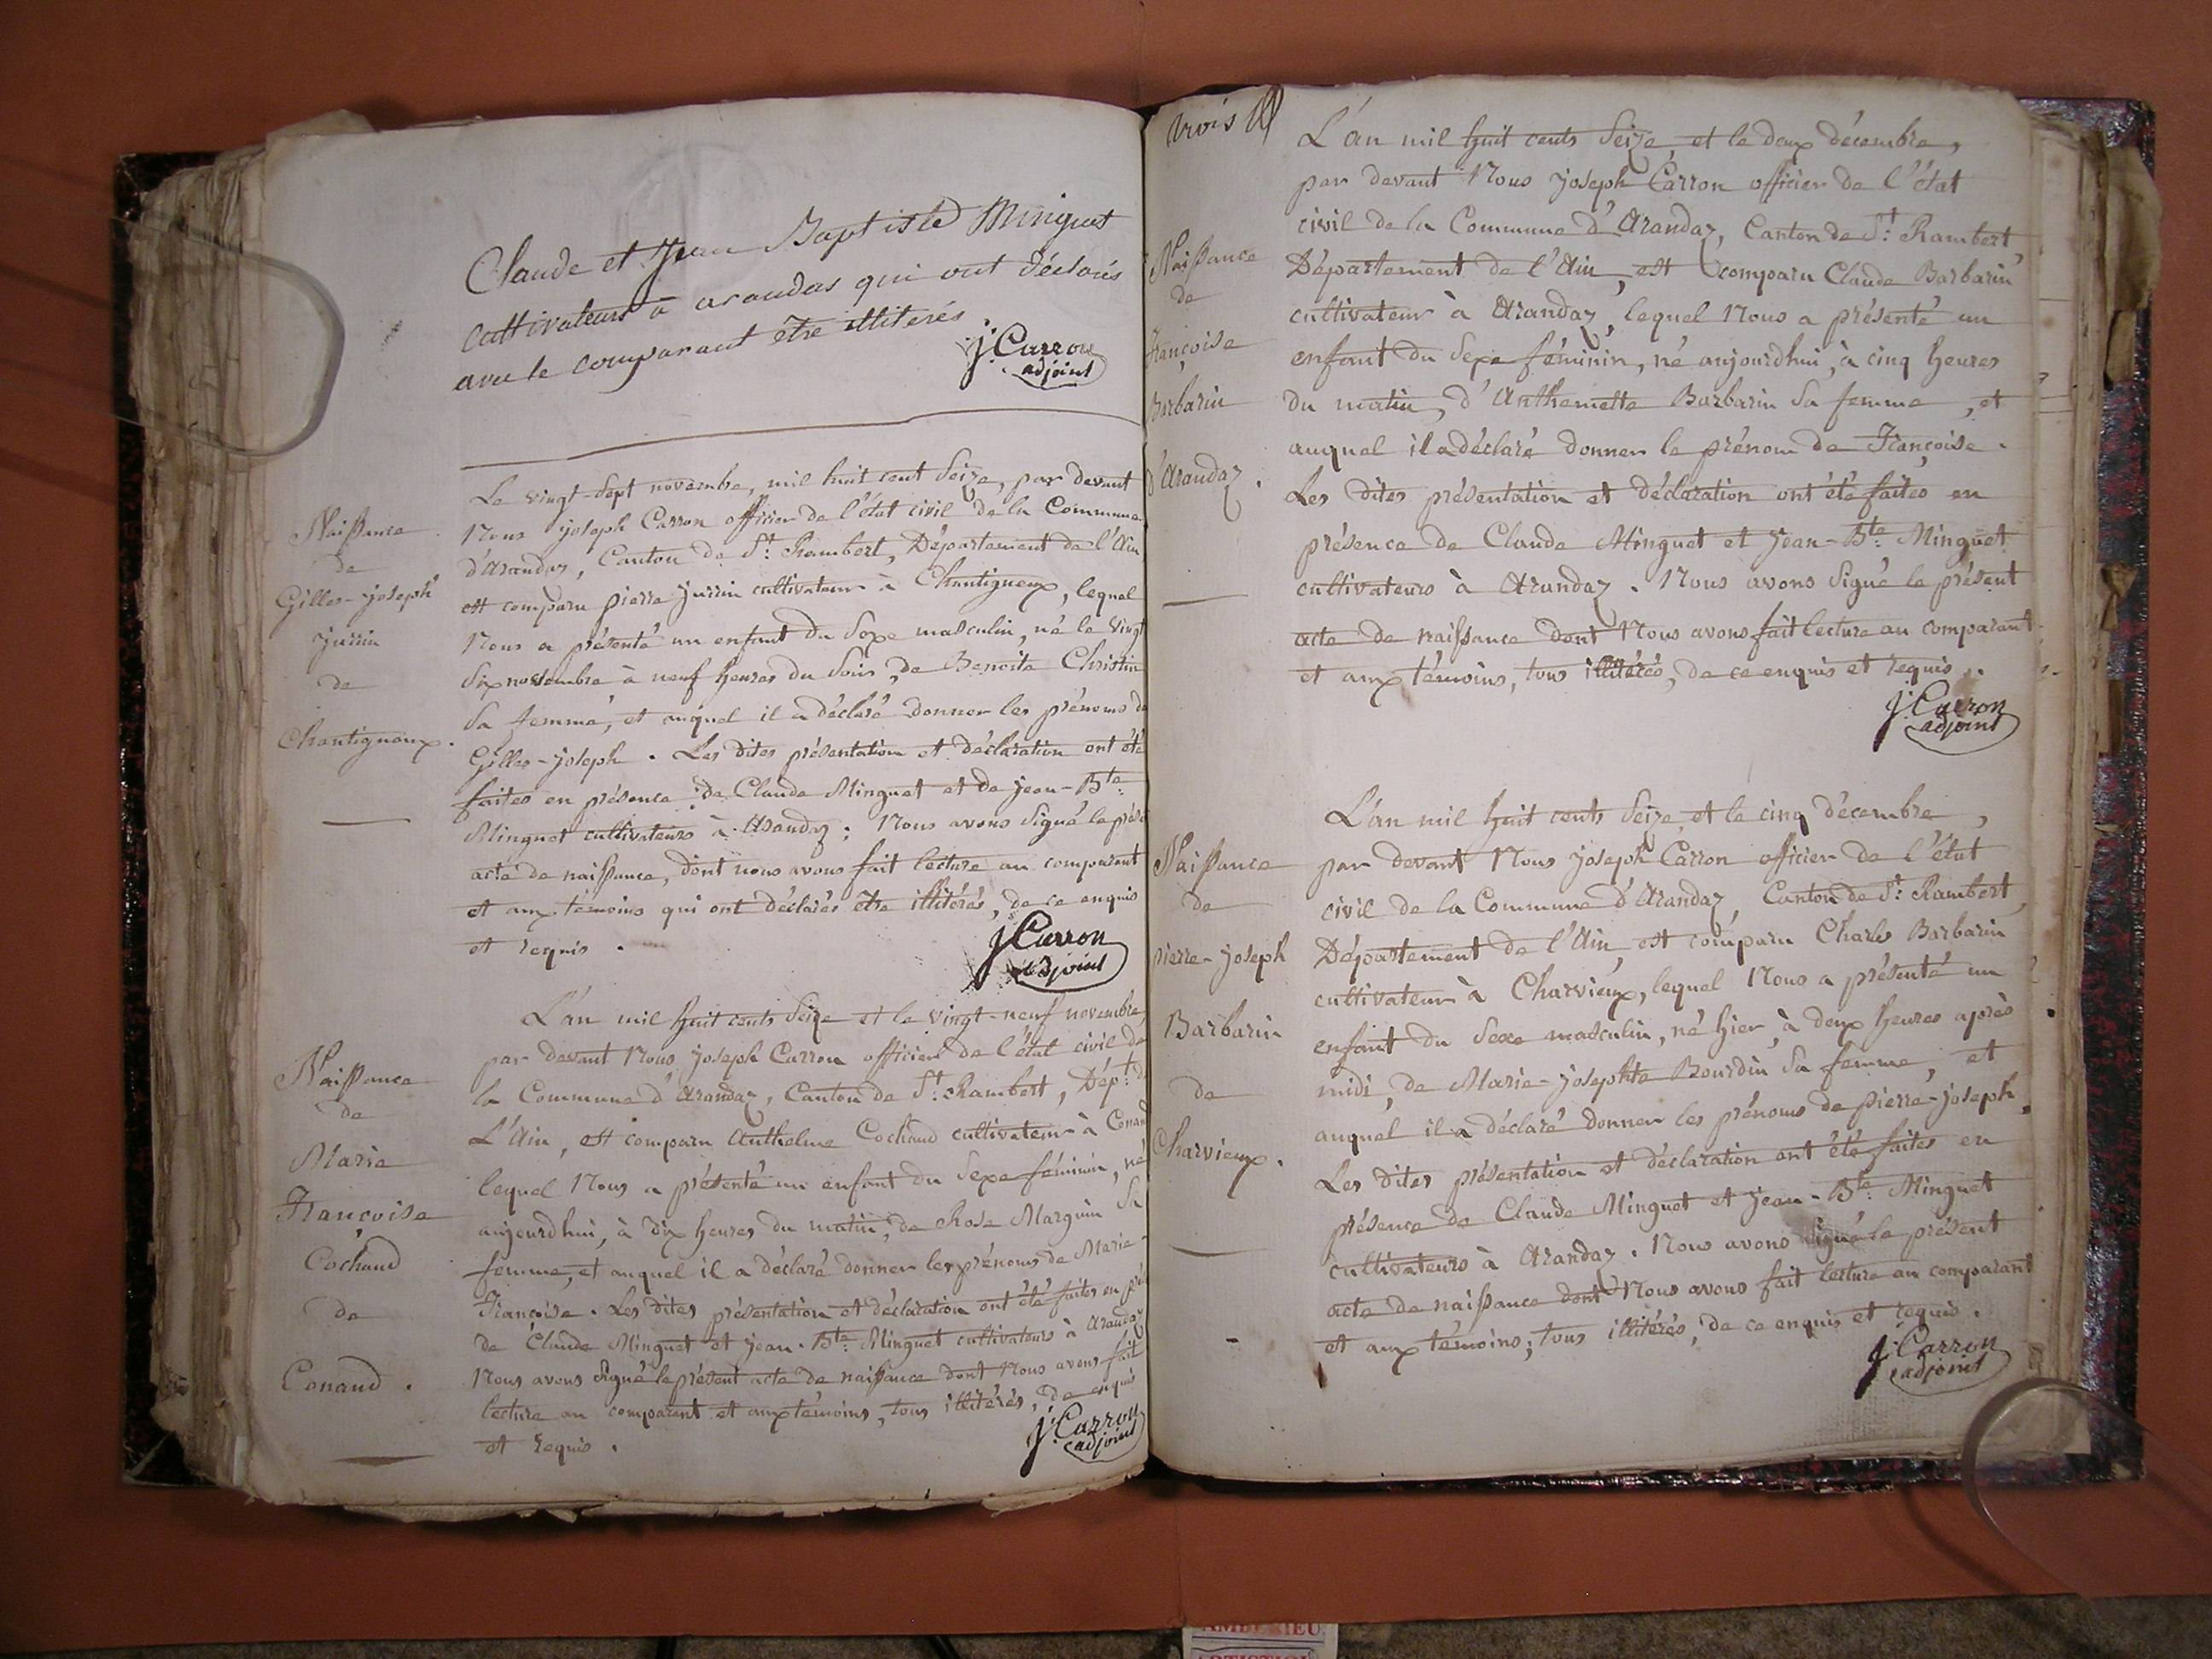 Claude et Jean Baptiste Minguet
cultivateurs à arandas qui ont déclarés
avec le comparant être illiterés.
J. Carron
adjoint
Naissance
de
Gilles-joseph
jurrin
de
Chantigneux.
Le vingt-sept novembre, mil huit cent seize, par devant
Nous joseph Carron officier de l'état civil de la Commune
d'arandaz, Canton de St. Rambert, Département de l'Ain
est comparu pierre jurrin cultivateur à Chantigneux, lequel
Nous a présenté un enfant du sexe masculin, né le vingt
six novembre à neuf heures du soir, de Benoite Christin
sa femme, et auquel il a déclaré donner les prénoms de
Gilles-joseph. Les dites présentation et déclaration ont été
faites en présence de Claude Minguet et de jean-Bte.
Minguet cultivateurs à Arandaz; Nous avons signé le prése
acte de naissance, dont nous avons fait lecture au comparant
et aux témoins qui ont déclarés être illitérés, de ce enquis
et requis.
J Carron
adjoint
Naissance
de
Marie
Françoise
Cochaud
de
Conand.
L'án mil huit cents seize et le vingt-neuf novembre,
par devant Nous joseph Carron officier de l'état civil de
la Commune d'Arandaz, Canton de St. Rambert, Dépt. de
L'Ain, est comparu Anthelme Cochaud cultivateur à Conand
lequel Nous a présenté un enfant du sexe féminin, né
aujourdhui, à dix heures du matin, de Rose Marguin sa
femme, et auquel il a déclaré donner les prénoms de Marie-
Françoise. Les dites présentation et déclaration ont été faites en pré
de Claude Minguet et jean-Bte. Minguet cultivateurs à Arandaz
Nous avons signé le présent acte de naissance dont Nous avons fait
lecture au comparant et aux témoins, tous illitérés, de enquis
et requis.
J. Carron
adjoint
trois
Naissance
de
françoise
Barbarin
d'Arandaz.
L'án mil huit cents seize, et le deux décembre,
par devant Nous joseph Carron officier de l'état
civil de la Commune d'Arandaz, Canton de St. Rambert,
Département de l'Ain, est comparu Claude Barbarin
cultivateur à Arandaz, lequel Nous a présenté un
enfant du sexe féminin, né aujourdhui, à cinq heures
du matin, d'Anthemette Barbarin sa femme, et
auquel il a déclaré donner le prénom de Françoise.
Les dites présentation et déclaration ont été faites en
présence de Claude Minguet et jean-Bte. Minguet
cultivateurs à Arandaz. Nous avons signé le présent
acte de naissance dont Nous avons fait lecture au comparant
et aux témoins, tous illitérés, de ce enquis et requis.
J. Carron
adjoint
Naissance
de
pierre-joseph
Barbarin
de
Charvieux.
L'án mil huit cents seize, et le cinq décembre,
par devant Nous joseph Carron officier de l'état
civil de la Commune d'Arandaz, Canton de St. Rambert
Département de l'Ain, est comparu Charles Barbarin
cultivateur à Charvieux, lequel Nous a présenté un
enfant du sexe masculin, né hier, à deux heures après
midi, de Marie-josephte Bourdin sa femme, et
auquel il a déclaré donner les prénoms de pierre-joseph.
Les dites présentation et déclaration ont été faites en
présence de Claude Minguet et jean-Bte. Minguet
cultivateurs à Arandaz. Nous avons signé le présent
acte de naissance dont Nous avons fait lecture au comparant
et aux témoins, tous illitérés, de ce enquis et requis.
J. Carron
adjoint
AMBERIEU